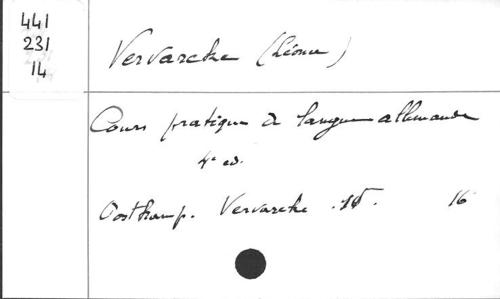 441
231
14
Vervarcke (Léonie)
Cours pratique de langue allemande
4e ed.
Oostkamp. Vervarcke. 16